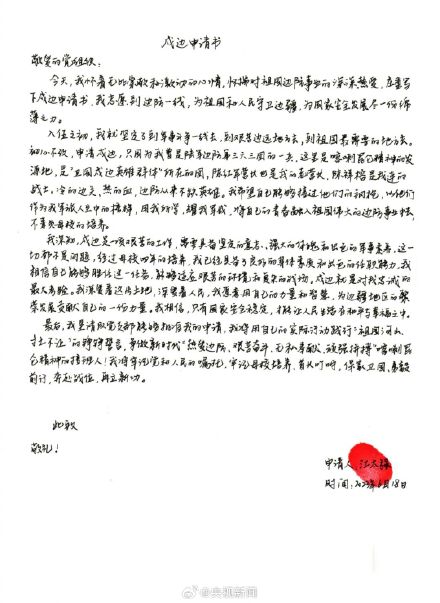 戍边申请书
敬爱的党组织:
今天,我怀着无比崇敬和激动的心情,怀揣对祖国边防事业的深深热爱,庄重写
下戍边申请书,我志愿到边防一线,为祖国和人民守卫边疆,为国家安全发展尽一份绵
薄之力。
入伍之初,我就坚定了到军事斗争一线去,到艰苦边远地方去,到祖国最需要的地方去。
初心不改,申请戍边,只因为我曾是陆军边防第三六三团的一员,这里是喀喇昆仑精神的发
源地,是"卫国戍边英雄群体"所在的团,陈红军营长也是我的老营长,陈祥榕是我连的
战士。冷的边关,热的血,边防从来不缺英雄。我希望自己能够接过他们的钢枪,以他们
作为军旅人生中的榜样,用我所学,耀我军威,将自己的青春融入祖国伟大的边防事业中去,
不辜负母校的培养。
我深知,戍边是一项艰苦的工作,需要具备坚定的意志、强大的体魄和出色的军事素养,这一
切都不是问题,经过母校四年的培养,我已经具备了良好的身体素质和出色的任职能力,我
相信自己能够胜任这一任务,能够适应艰苦的环境和复杂的战场。戍边就是对我忠诚的
最大考验。我深爱着这片土地,深爱着人民,我愿意用自己的力量和智慧,为边疆地区的繁
荣发展贡献自己的一份力量。我相信,只有国家安全稳定,才能让人民生活在和平与幸福之中。
最后,恳请党支部能够批准我的申请,我将用自己的实际行动践行"祖国河山,
寸土不让"的铮铮誓言,争做新时代"热爱边防、艰苦奋斗、无私奉献、顽强拼搏"喀喇昆
仑精神的接班人!我将牢记党和人民的嘱托,牢记母校培养,首长叮咛,保家卫国,勇毅
前行,奔赴战位,再立新功。
此致
敬礼!
申请人:汪
时间:2023年6月18日
@央视新闻